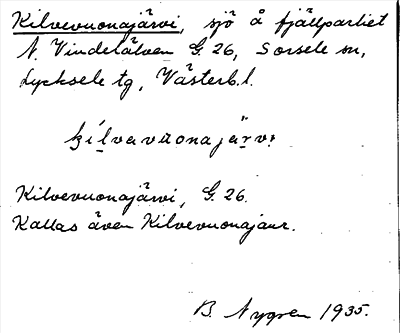 Kilvevuonajärvi, sjö å fjällpartiet
N. Vindelälven G. 26, Sorsele sn,
Lycksele tg, Västerb. l.
kilvavuonajärvi
Kilvevuonajärvi, G. 26.
Kallas även Kilvevuonajaur.
B. Nygren 1935.